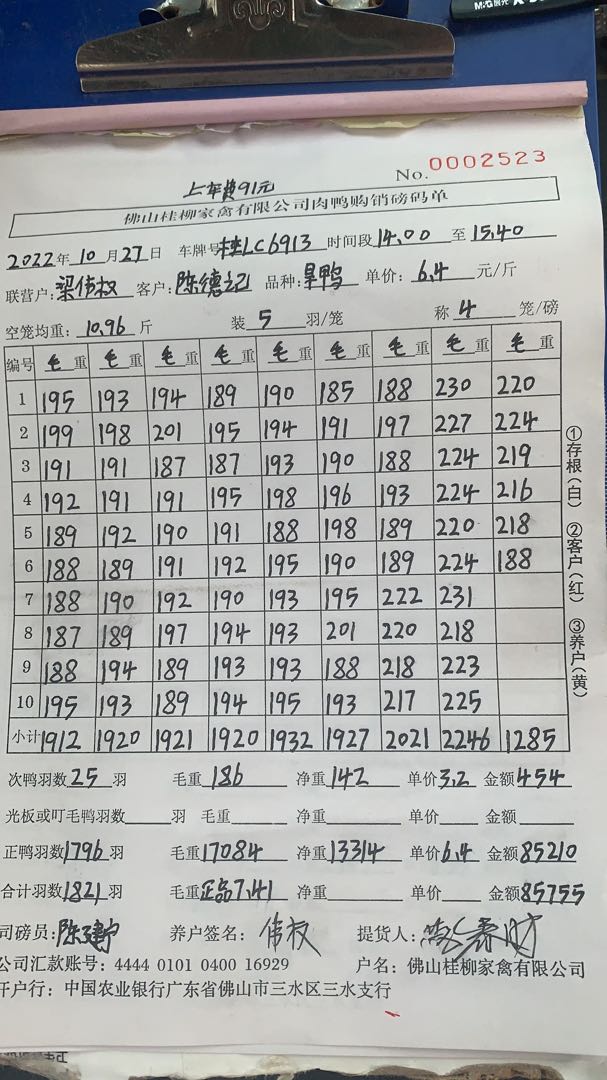 M&G晨光
No. 0002523
上车费91元
佛山桂柳家禽有限公司肉鸭购销磅码单
2022年10月27日 车牌号桂LC6913 时间段14.00至15.40
联营户:梁伟权 客户:陈德记 品种:旱鸭 单价:6.4元/斤
空笼均重:10.96斤 装5羽/笼 称4笼/磅
编号 毛重 毛重 毛重 毛重 毛重 毛重 毛重 毛重 毛重
1 195 193 194 189 190 185 188 230 220
2 199 198 201 195 194 191 197 227 224
3 191 191 187 187 193 190 188 224 219
4 192 191 191 195 198 196 193 224 216
5 189 192 190 191 188 198 189 220 218
6 188 189 191 192 195 190 189 224 188
7 188 190 192 190 193 195 222 231
8 187 189 197 194 193 201 220 218
9 188 194 189 193 193 188 218 223
10 195 193 189 194 195 193 217 225
小计 1912 1920 1921 1920 1932 1927 2021 2246 1285
①存根(白) ②客户(红) ③养户(黄)
次鸭羽数25羽 毛重186 净重142 单价3.2 金额454
光板或叮毛鸭羽数 羽 毛重 净重 单价 金额
正鸭羽数1796羽 毛重17084 净重13314 单价6.4 金额85210
合计羽数1821羽 毛重正品7.41 净重 单价 金额85755
司磅员:陈建宁 养户签名:伟权 提货人:
公司汇款账号:4444 0101 0400 16929 户名:佛山桂柳家禽有限公司
开户行:中国农业银行广东省佛山市三水区三水支行